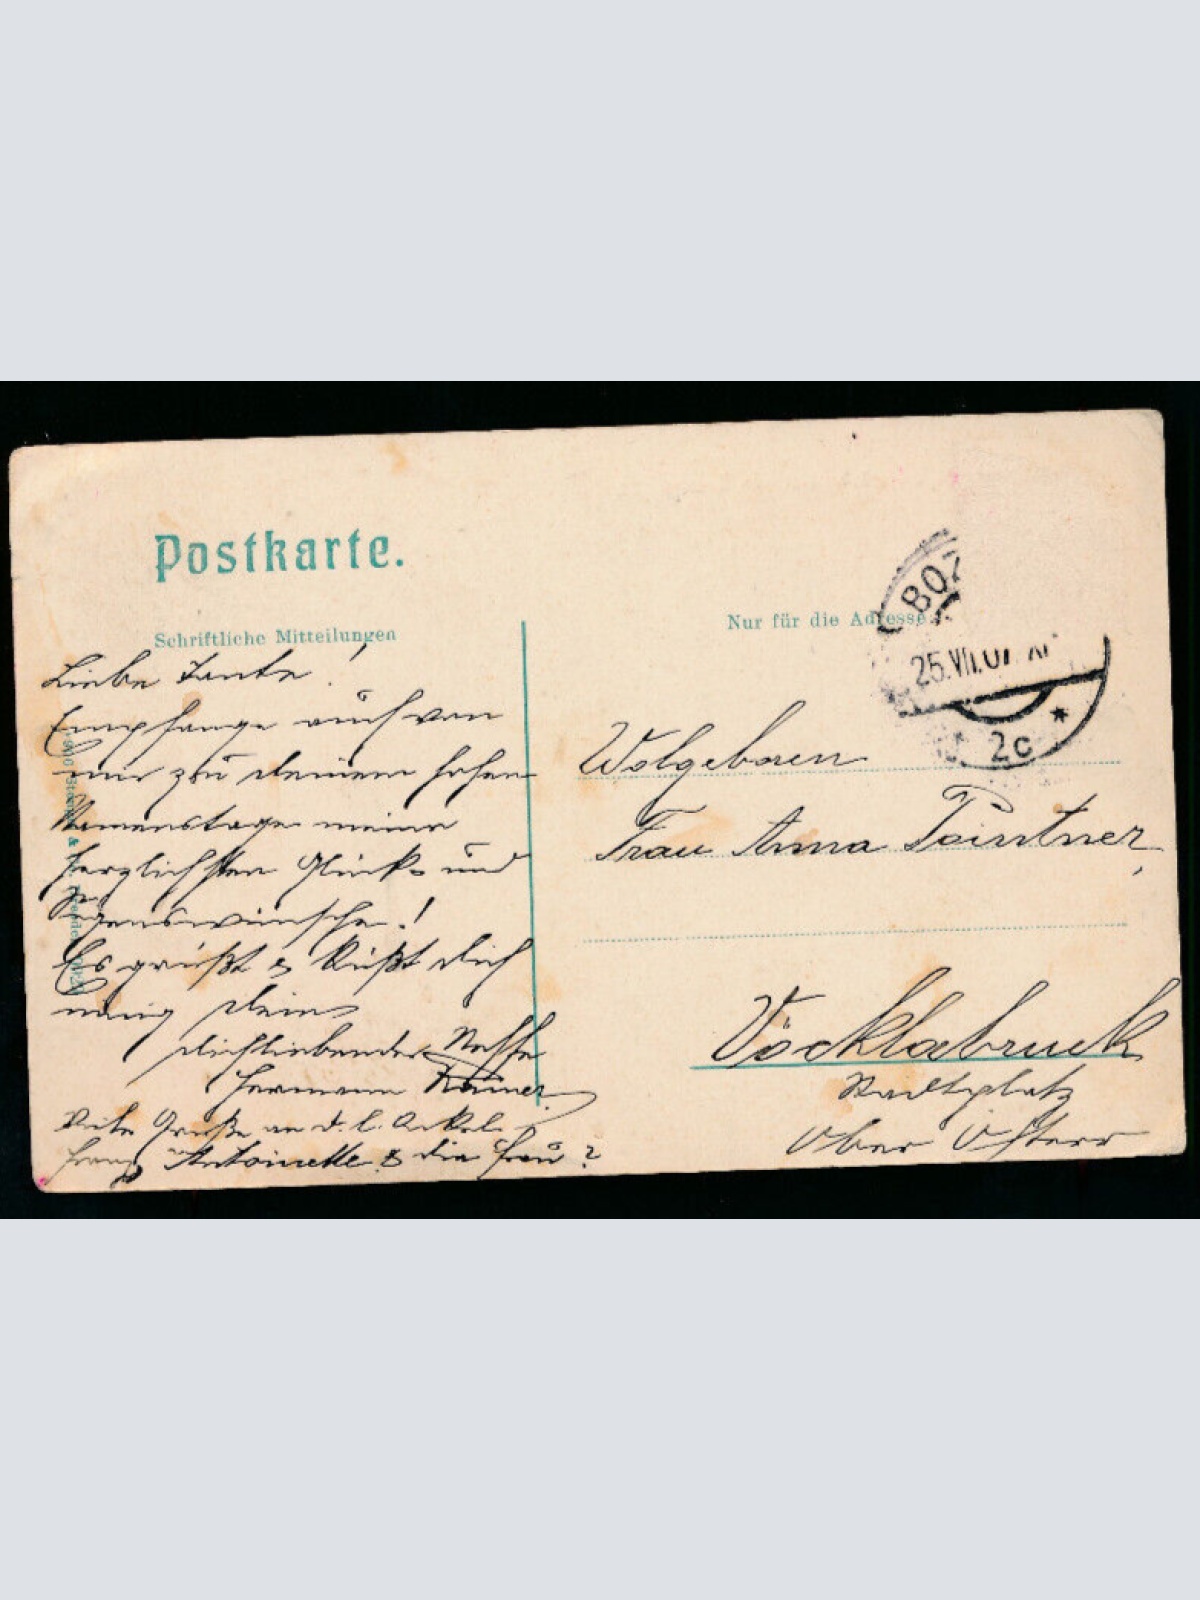 Postkarte.
Schriftliche Mitteilungen
Nur für die Adresse
BOZ
25.VII.07 XI
* 2c *
Liebe Tante!
Empfange auch von
mir zu deinem hohen
Namenstage meine
herzlichsten Glück- und
Segenswünsche!
Es grüßt & küßt dich
innig dein
dichliebender Neffe
Hermann
Viele Grüße an d. l. Onkel
Franz Antoinette & die Frau?
Wolgeboren
Frau Anna Pointner,
Vöcklabruck
Stadtplatz
Ober Österr